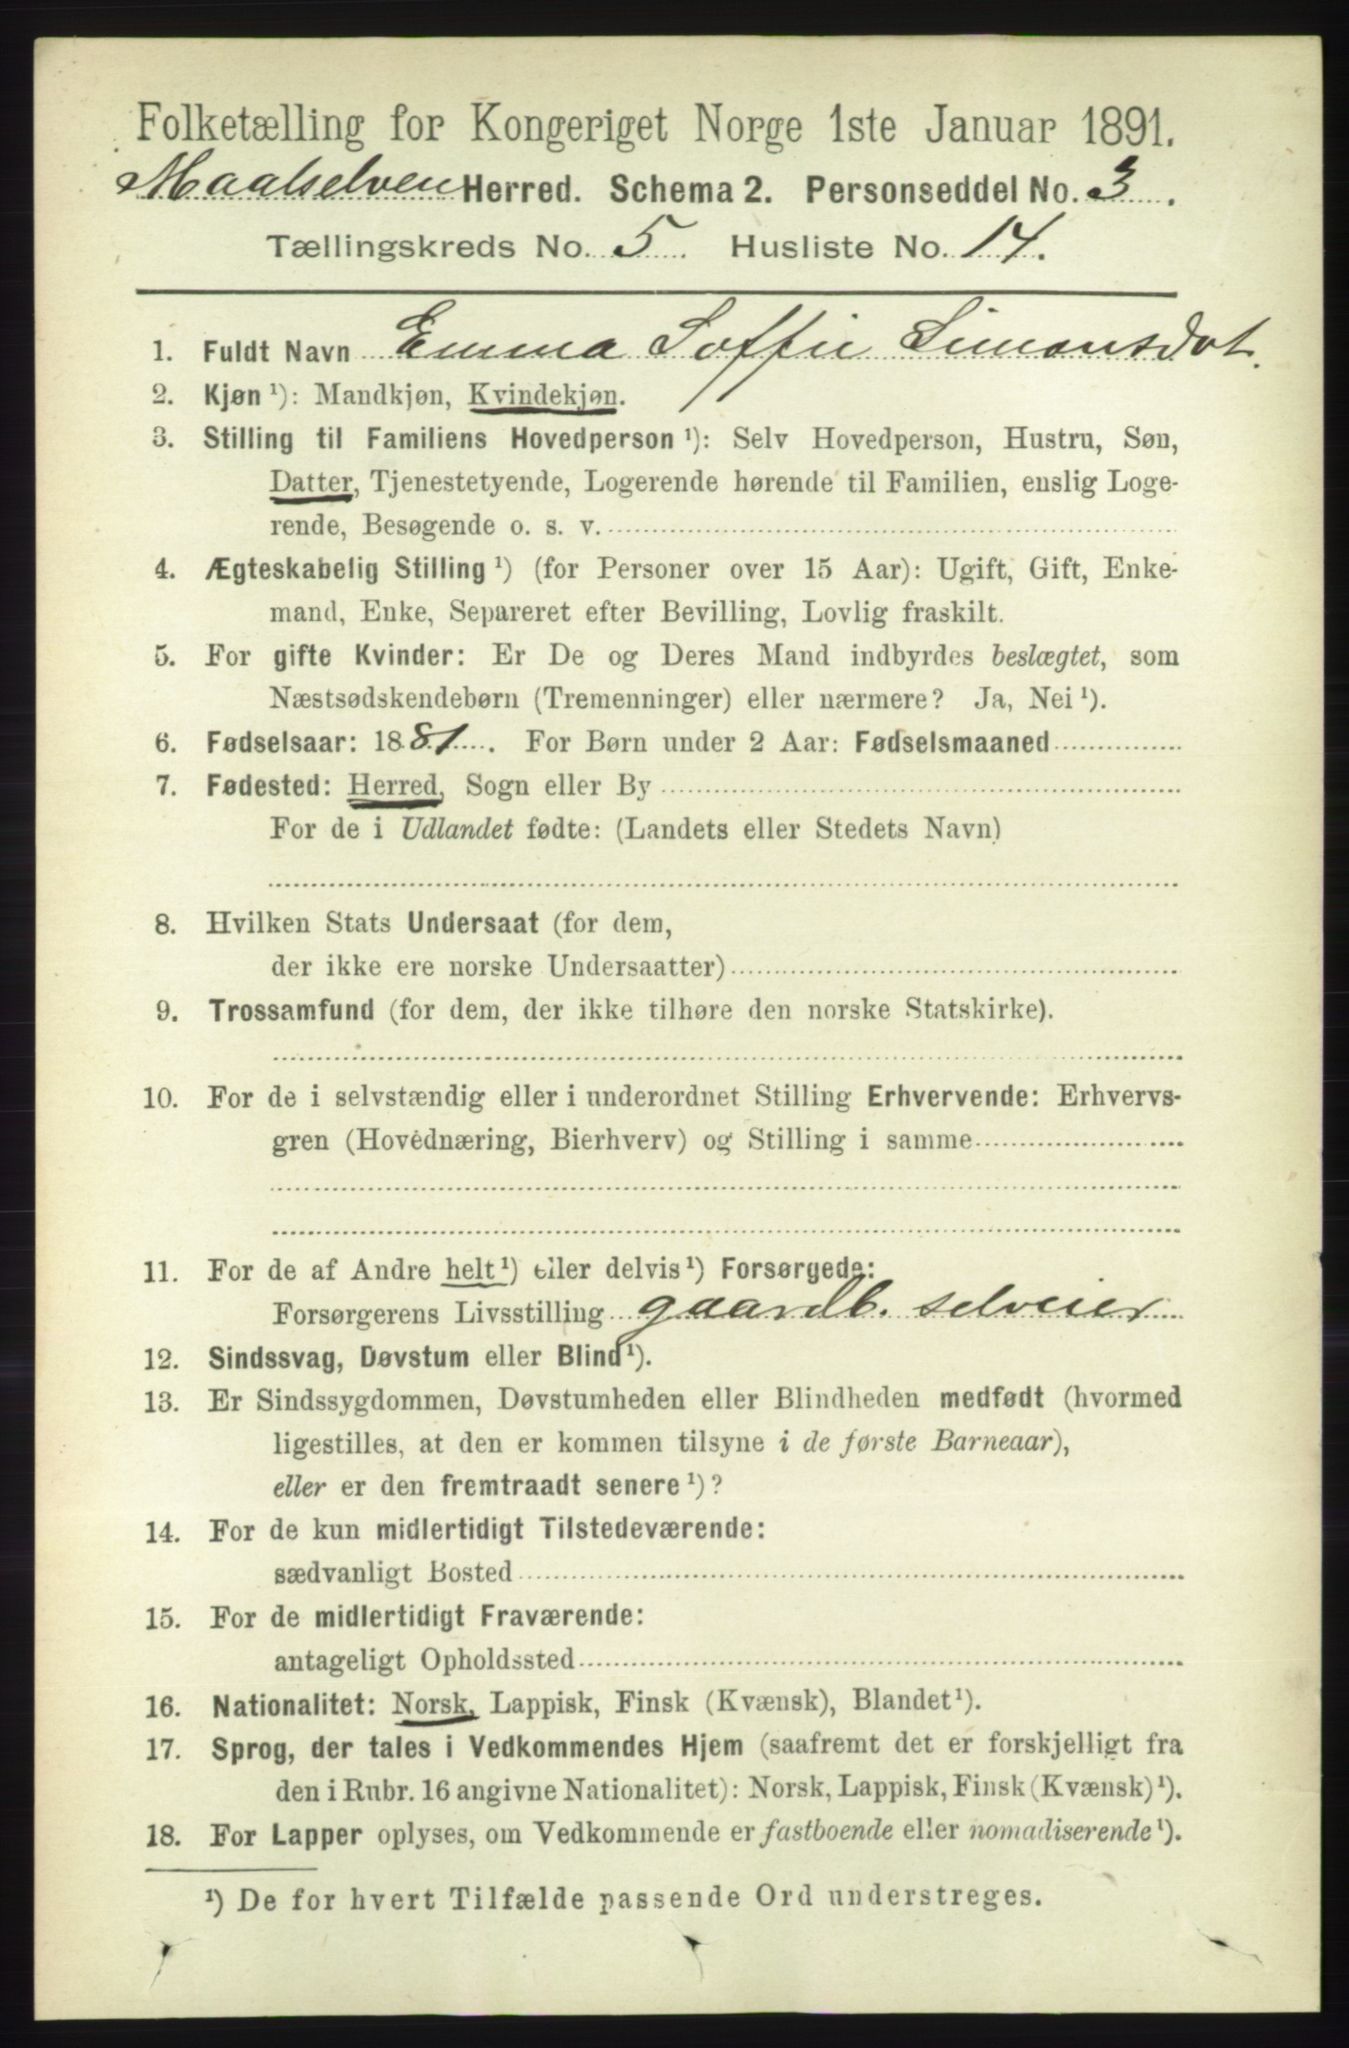 Folketælling for Kongeriget Norge 1ste Januar 1891.
Maalselven Herred. Schema 2. Personseddel No. 3.
Tællingskreds No. 5. Husliste No. 14.
1. Fuldt Navn Emma Soffie Simonsdat.
2. Kjøn ¹): Mandkjøn, Kvindekjøn.
3. Stilling til Familiens Hovedperson ¹): Selv Hovedperson, Hustru, Søn,
Datter, Tjenestetyende, Logerende hørende til Familien, enslig Loge-
rende, Besøgende o. s. v.
4. Ægteskabelig Stilling ¹) (for Personer over 15 Aar): Ugift, Gift, Enke-
mand, Enke, Separeret efter Bevilling, Lovlig fraskilt.
5. For gifte Kvinder: Er De og Deres Mand indbyrdes beslægtet, som
Næstsødskendebørn (Tremenninger) eller nærmere? Ja, Nei ¹).
6. Fødselsaar: 1881. For Børn under 2 Aar: Fødselsmaaned
7. Fødested: Herred, Sogn eller By
For de i Udlandet fødte: (Landets eller Stedets Navn)
8. Hvilken Stats Undersaat (for dem,
der ikke ere norske Undersaatter)
9. Trossamfund (for dem, der ikke tilhøre den norske Statskirke).
10. For de i selvstændig eller i underordnet Stilling Erhvervende: Erhvervs-
gren (Hovednæring, Bierhverv) og Stilling i samme
11. For de af Andre helt ¹) eller delvis ¹) Forsørgede:
Forsørgerens Livsstilling gaardb. selveier
12. Sindssvag, Døvstum eller Blind ¹).
13. Er Sindssygdommen, Døvstumheden eller Blindheden medfødt (hvormed
ligestilles, at den er kommen tilsyne i de første Barneaar),
eller er den fremtraadt senere ¹)?
14. For de kun midlertidigt Tilstedeværende:
sædvanligt Bosted
15. For de midlertidigt Fraværende:
antageligt Opholdssted
16. Nationalitet: Norsk, Lappisk, Finsk (Kvænsk), Blandet ¹).
17. Sprog, der tales i Vedkommendes Hjem (saafremt det er forskjelligt fra
den i Rubr. 16 angivne Nationalitet): Norsk, Lappisk, Finsk (Kvænsk) ¹).
18. For Lapper oplyses, om Vedkommende er fastboende eller nomadiserende ¹).
¹) De for hvert Tilfælde passende Ord understreges.